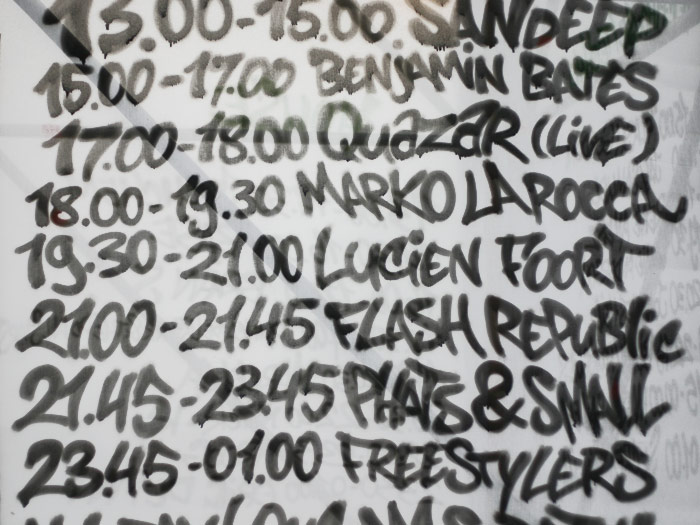 13.00-15.00. SANDEEP
15.00-17.00 BENJAMiN BATES
17.00-18.00 QuaZaR (LivE)
18.00-19.30 MARKO LAROCCA
19.30-21.00 LuciEN FOORT
21.00-21.45 FLASH REPuBlic
21.45-23.45 PHATS & SMALL
23.45-01.00 FREESTYLERS